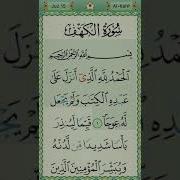 Juz 15
Al-Kahf
سُورَةُ الْكَهْفِ
بِسْمِ اللَّهِ الرَّحْمَٰنِ الرَّحِيمِ
الْحَمْدُ لِلَّهِ الَّذِي أَنْزَلَ عَلَى
عَبْدِهِ الْكِتَابَ وَلَمْ يَجْعَلْ
لَهُ عِوَجًا ۝ قَيِّمًا لِيُنْذِرَ
بَأْسًا شَدِيدًا مِنْ لَدُنْهُ
وَيُبَشِّرَ الْمُؤْمِنِينَ الَّذِينَ